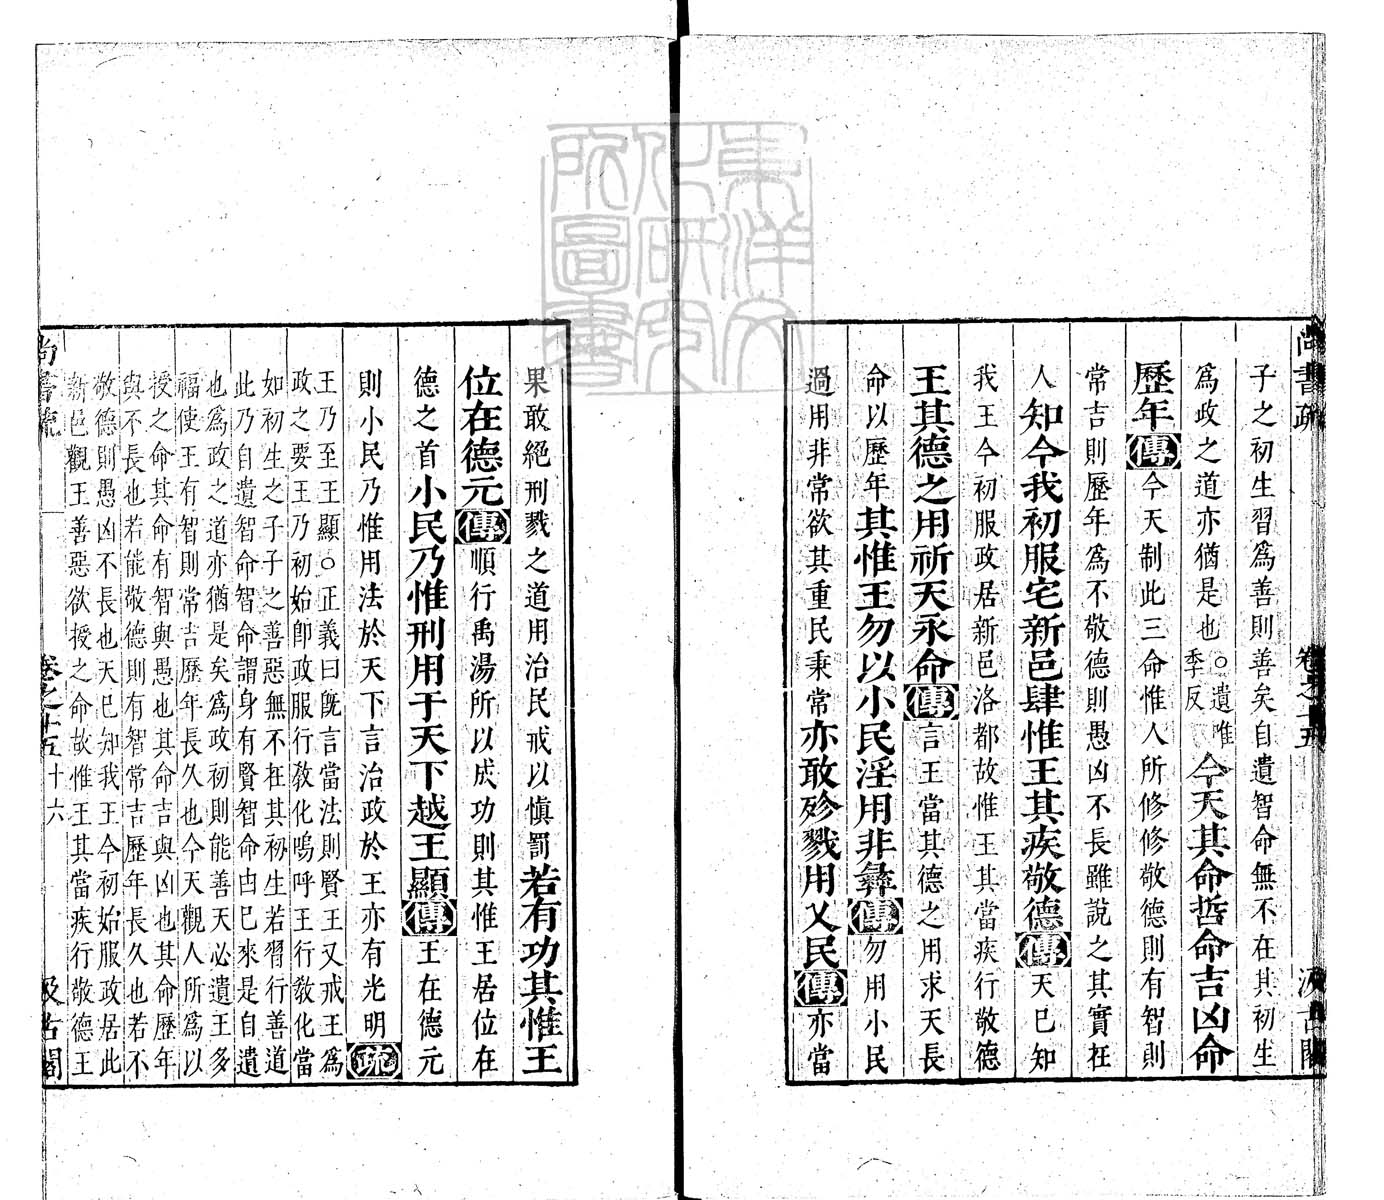 尚書疏 卷之十五 汲古閣
子之初生習爲善則善矣自遺智命無不在其初生
爲政之道亦猶是也○遺唯季反今天其命哲命吉凶命
歷年傳今天制此三命惟人所修修敬德則有智則
常吉則歷年爲不敬德則愚凶不長雖說之其實在
人知今我初服宅新邑肆惟王其疾敬德傳天已知
我王今初服政居新邑洛都故惟王其當疾行敬德
王其德之用祈天永命傳言王當其德之用求天長
命以歷年其惟王勿以小民淫用非彝傳勿用小民
過用非常欲其重民秉常亦敢殄戮用乂民傳亦當
果敢絕刑戮之道用治民戒以愼罰若有功其惟王
位在德元傳順行禹湯所以成功則其惟王居位在
德之首小民乃惟刑用于天下越王顯傳王在德元
則小民乃惟用法於天下言治政於王亦有光明疏
王乃至王顯○正義曰旣言當法則賢王又戒王爲
政之要王乃初始卽政服行敎化嗚呼王行敎化當
如初生之子子之善惡無不在其初生若習行善道
此乃自遺智命智命謂身有賢智命由已來是自遺
也爲政之道亦猶是矣爲政初則能善天必遺王多
福使王有智則常吉歷年長久也今天觀人所爲以
授之命其命有智與愚也其命吉與凶也其命歷年
與不長也若能敬德則有智常吉歷年長久也若不
敬德則愚凶不長也天已知我王今初始服政居此
新邑觀王善惡欲授之命故惟王其當疾行敬德王
尚書疏 卷之十五 十六 汲古閣
東洋文化研究所圖書